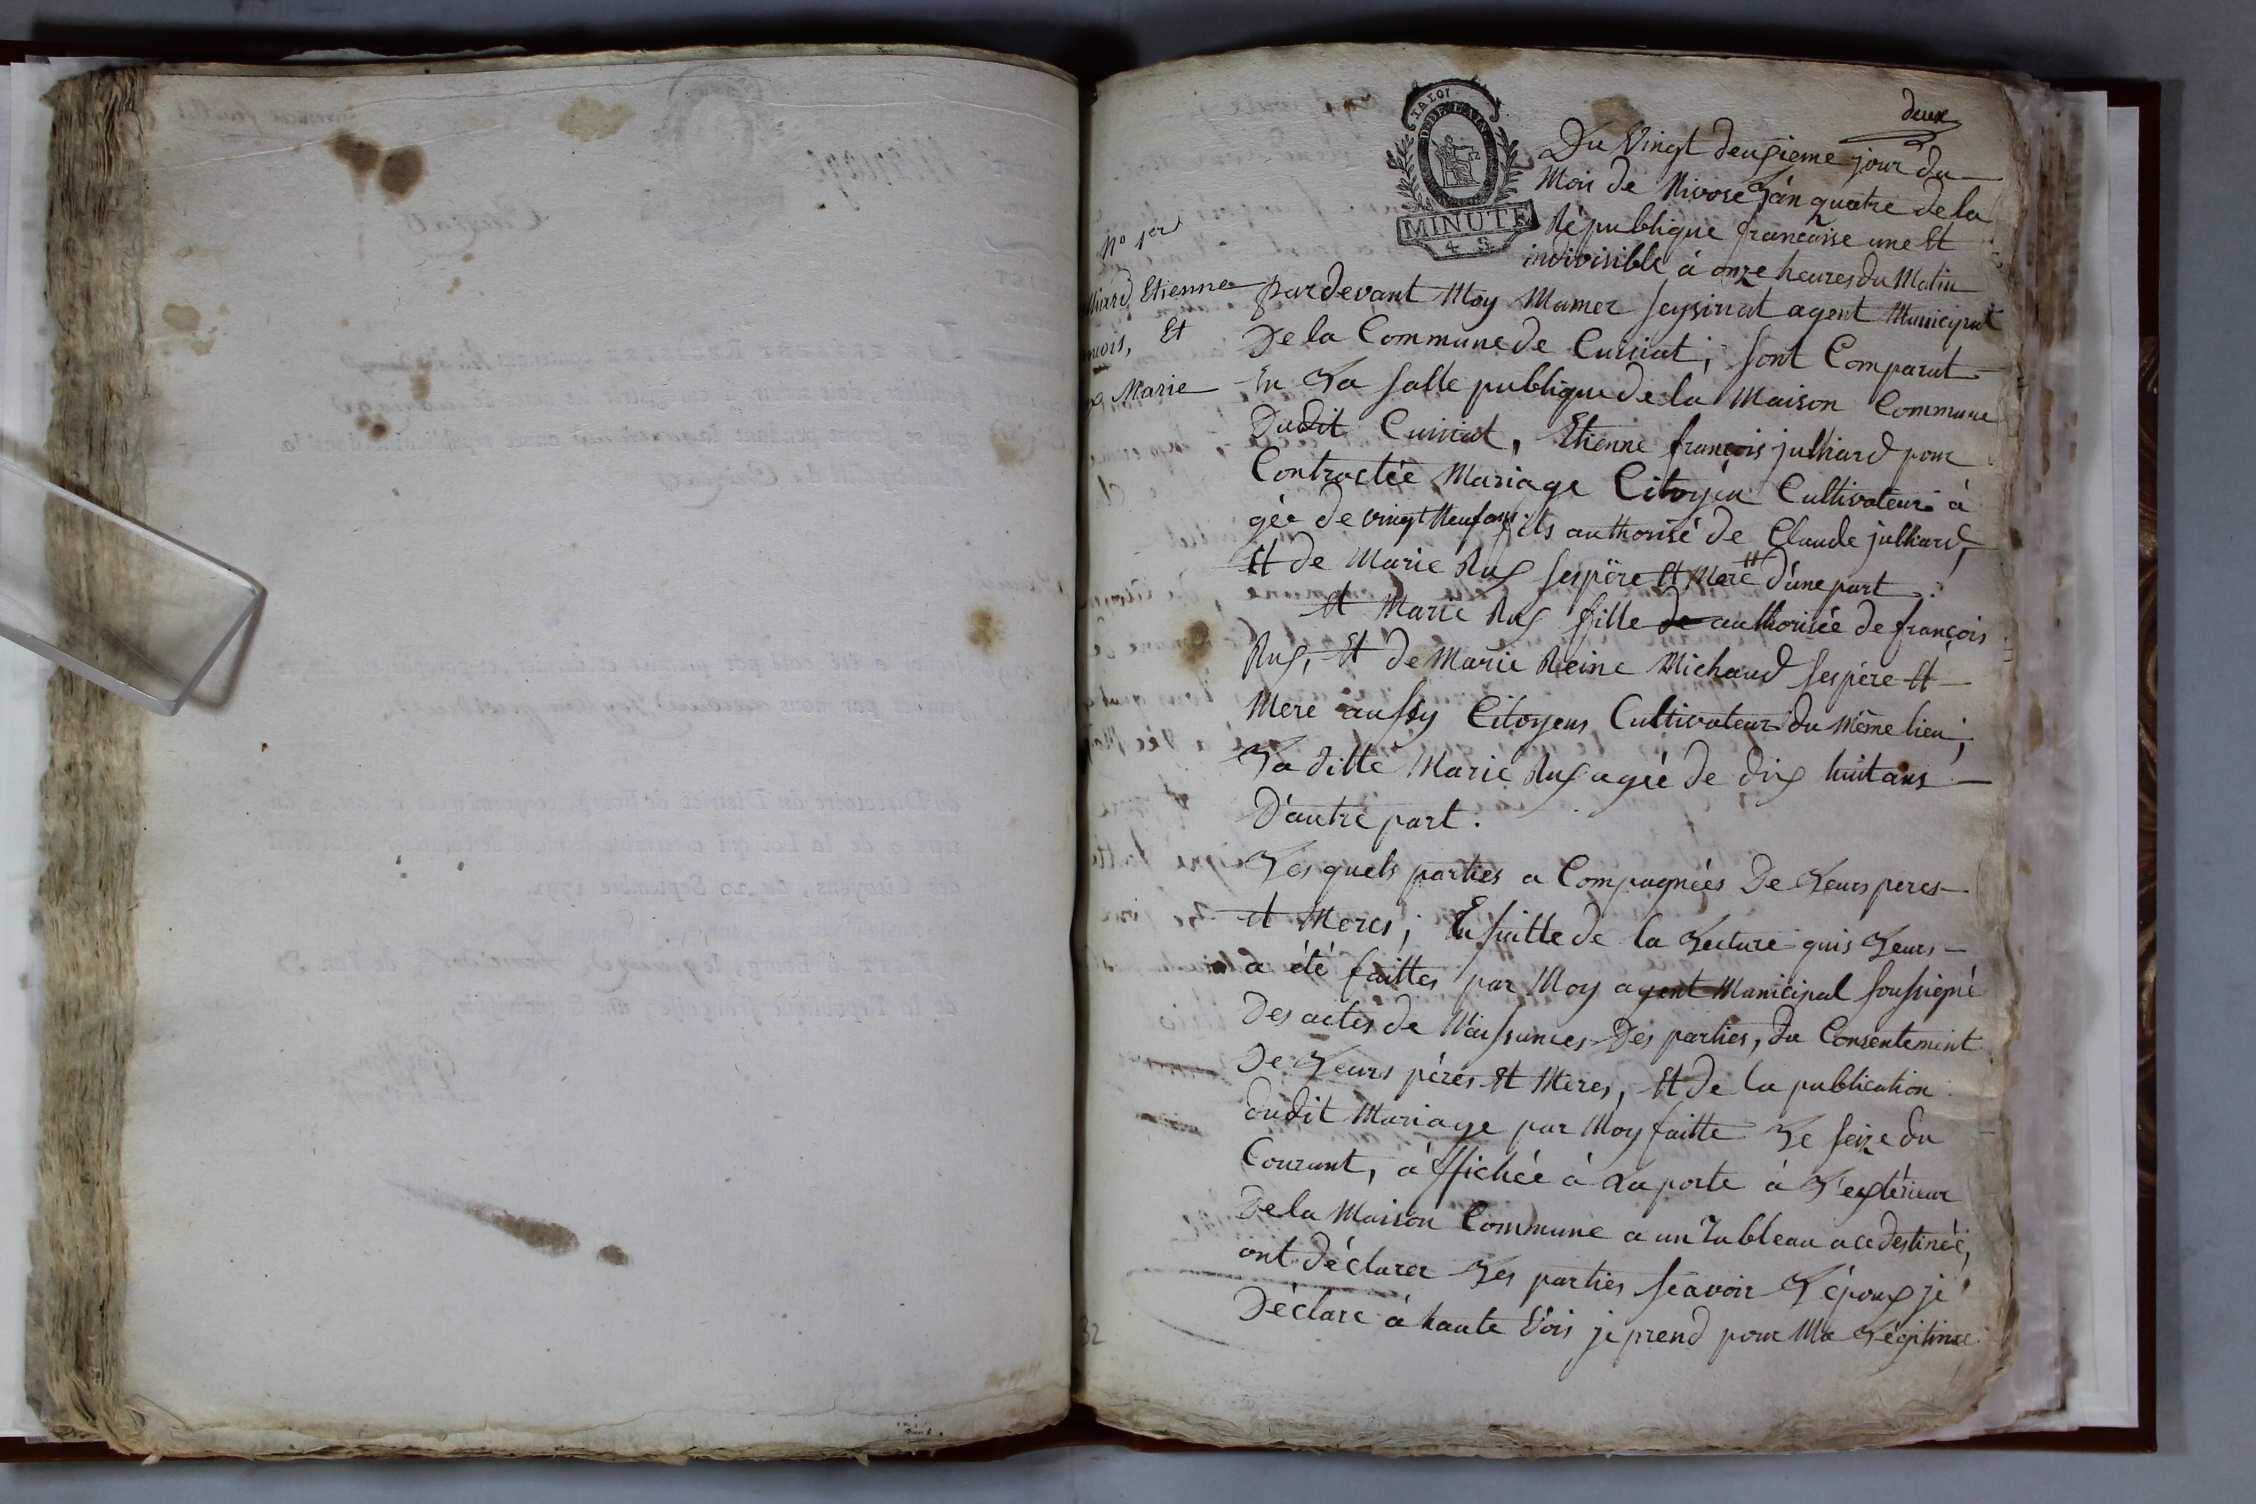 deux
LA LOI
MINUTE
4 S.
Du Vingt deuxieme jour du
Mois de Nivose L'an quatre de la
République francaise une Et
indivisible à onze heures du Matin
No 1er
lliard, Etienne
ncois, Et
x Marie
pardevant Moy Mamer Joysinat agent Municipal
De la Commune de Cuisiat; sont Comparut
En La salle publique de la Maison Commune
Dudit Cuisiat, Etienne françois julliard pour
Contractée Mariage Citoyen Cultivateur à
gée de vingt Neuf ans fils authorisé de Claude julliard,
Et de Marie Rux ses père Et Mere d'une part.
et Marie Rux fille de authorisée de françois
Rux, Et de Marie Reine Michaud ses père Et
Mere aussy Citoyens Cultivateur du Même lieu;
La ditte Marie Rux agée de dix huit ans
D'autre part.
Lesquels parties a Compagnées De Leurs peres
et Meres; En suitte de la Lecture quis Leurs
a été faittes par Moy agent Municipal soussigné
Des actes de Naissances Des parties, du Consentement
De Leurs péres Et Meres, Et de la publication
dudit Mariage par Moy faitte Le seize du
Courant, à ffichée à La porte à L'extérieur
De la Maison Commune a un Tableau a ce destinéé,
ont déclarer Les parties scavoir L'époux je
Déclare à haute Vois je prend pour Ma Légitime
32